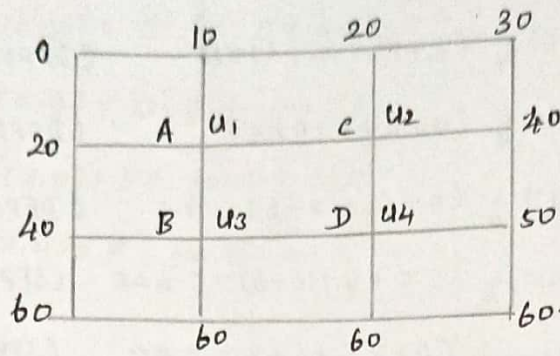 0 10 20 30
20 A u1 C u2 40
40 B u3 D u4 50
60 60 60 60